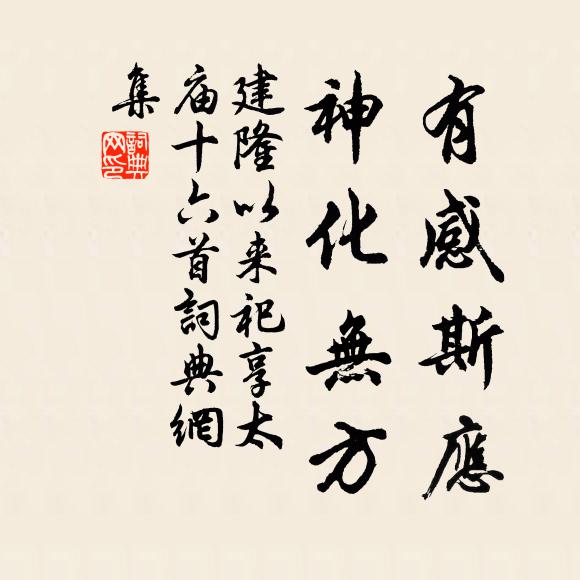 有感斯應
神化無方
建隆以来祀享太
庙十六首詞典網
集
詞典網印